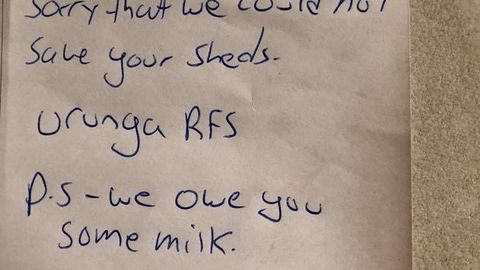 Sorry that we could not
save your sheds.
urunga RFS
P.S - we owe you
some milk.